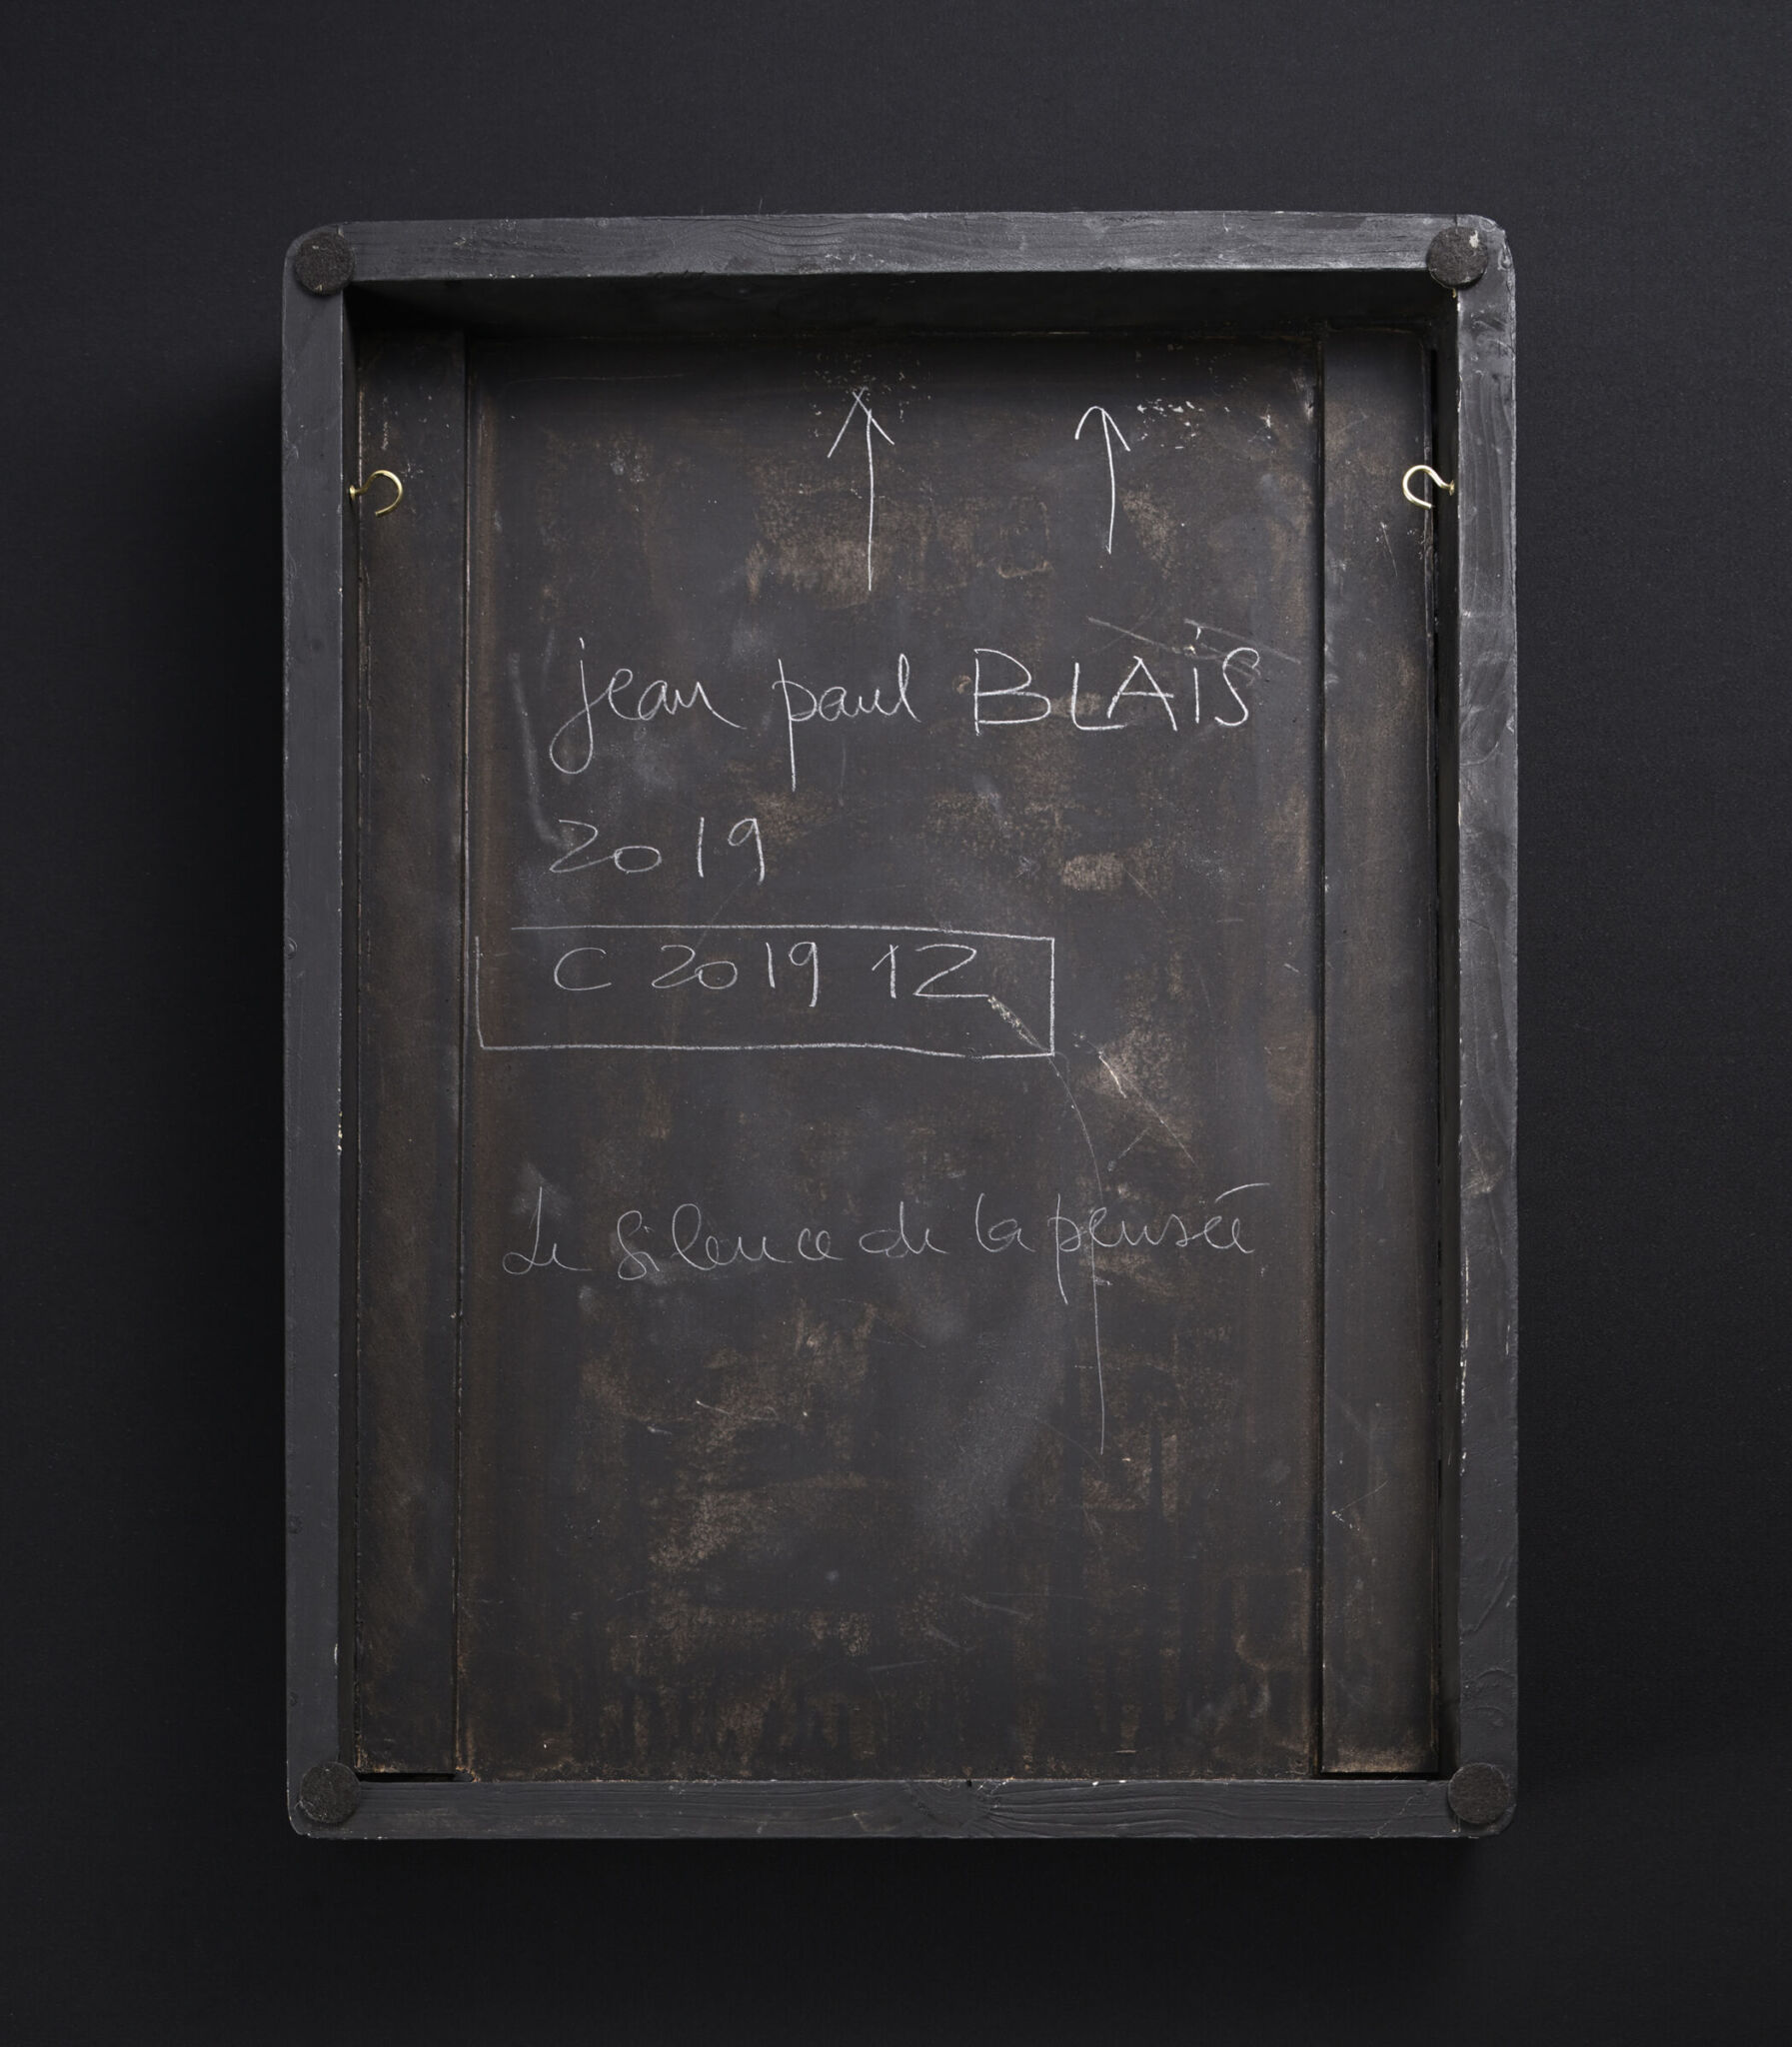 jean paul BLAiS
2019
C 2019 12
Le silence de la pensée